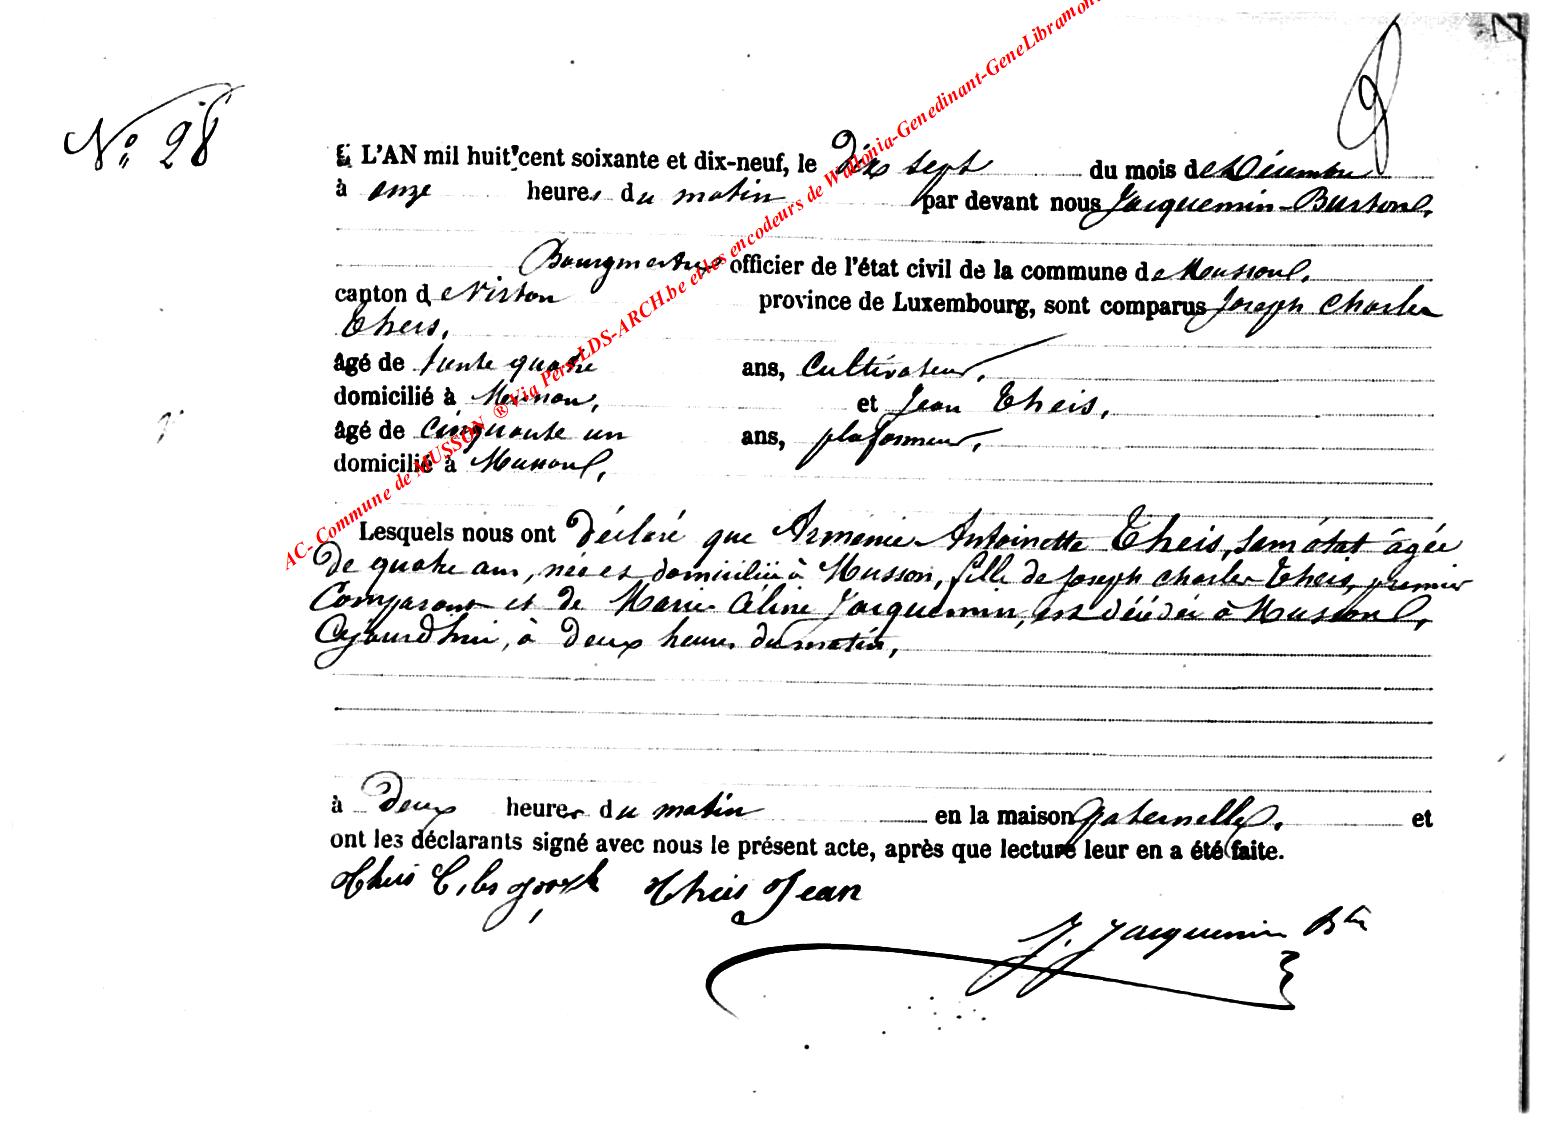 N° 28
L'AN mil huit cent soixante et dix-neuf, le Dix sept du mois de Décembre
à onze heures du matin par devant nous Jacquemin-Burton,
Bourgmestre officier de l'état civil de la commune de Musson,
canton de Virton province de Luxembourg, sont comparus Joseph Charles
Theis,
âgé de trente quatre ans, Cultivateur,
domicilié à Musson, et Jean Theis,
âgé de Cinquante un ans, plafonneur,
domicilié à Musson,
Lesquels nous ont déclaré que Arménie Antoinette Theis, sans état âgée
De quatre ans, née et domiciliée à Musson, fille de Joseph Charles Theis, premier
Comparant et de Marie Céline Jacquemin, est décédée à Musson,
Aujourd'hui, à Deux heures du matin,
à Deux heures du matin en la maison paternelle, et
ont les déclarants signé avec nous le présent acte, après que lecture leur en a été faite.
Theis Joseph Theis Jean
J. Jacquemin Bton
AC- Commune de MUSSON ® Via Pers LDS-ARCH.be et les encodeurs de Wallonia-Genedinant-GeneLibramont